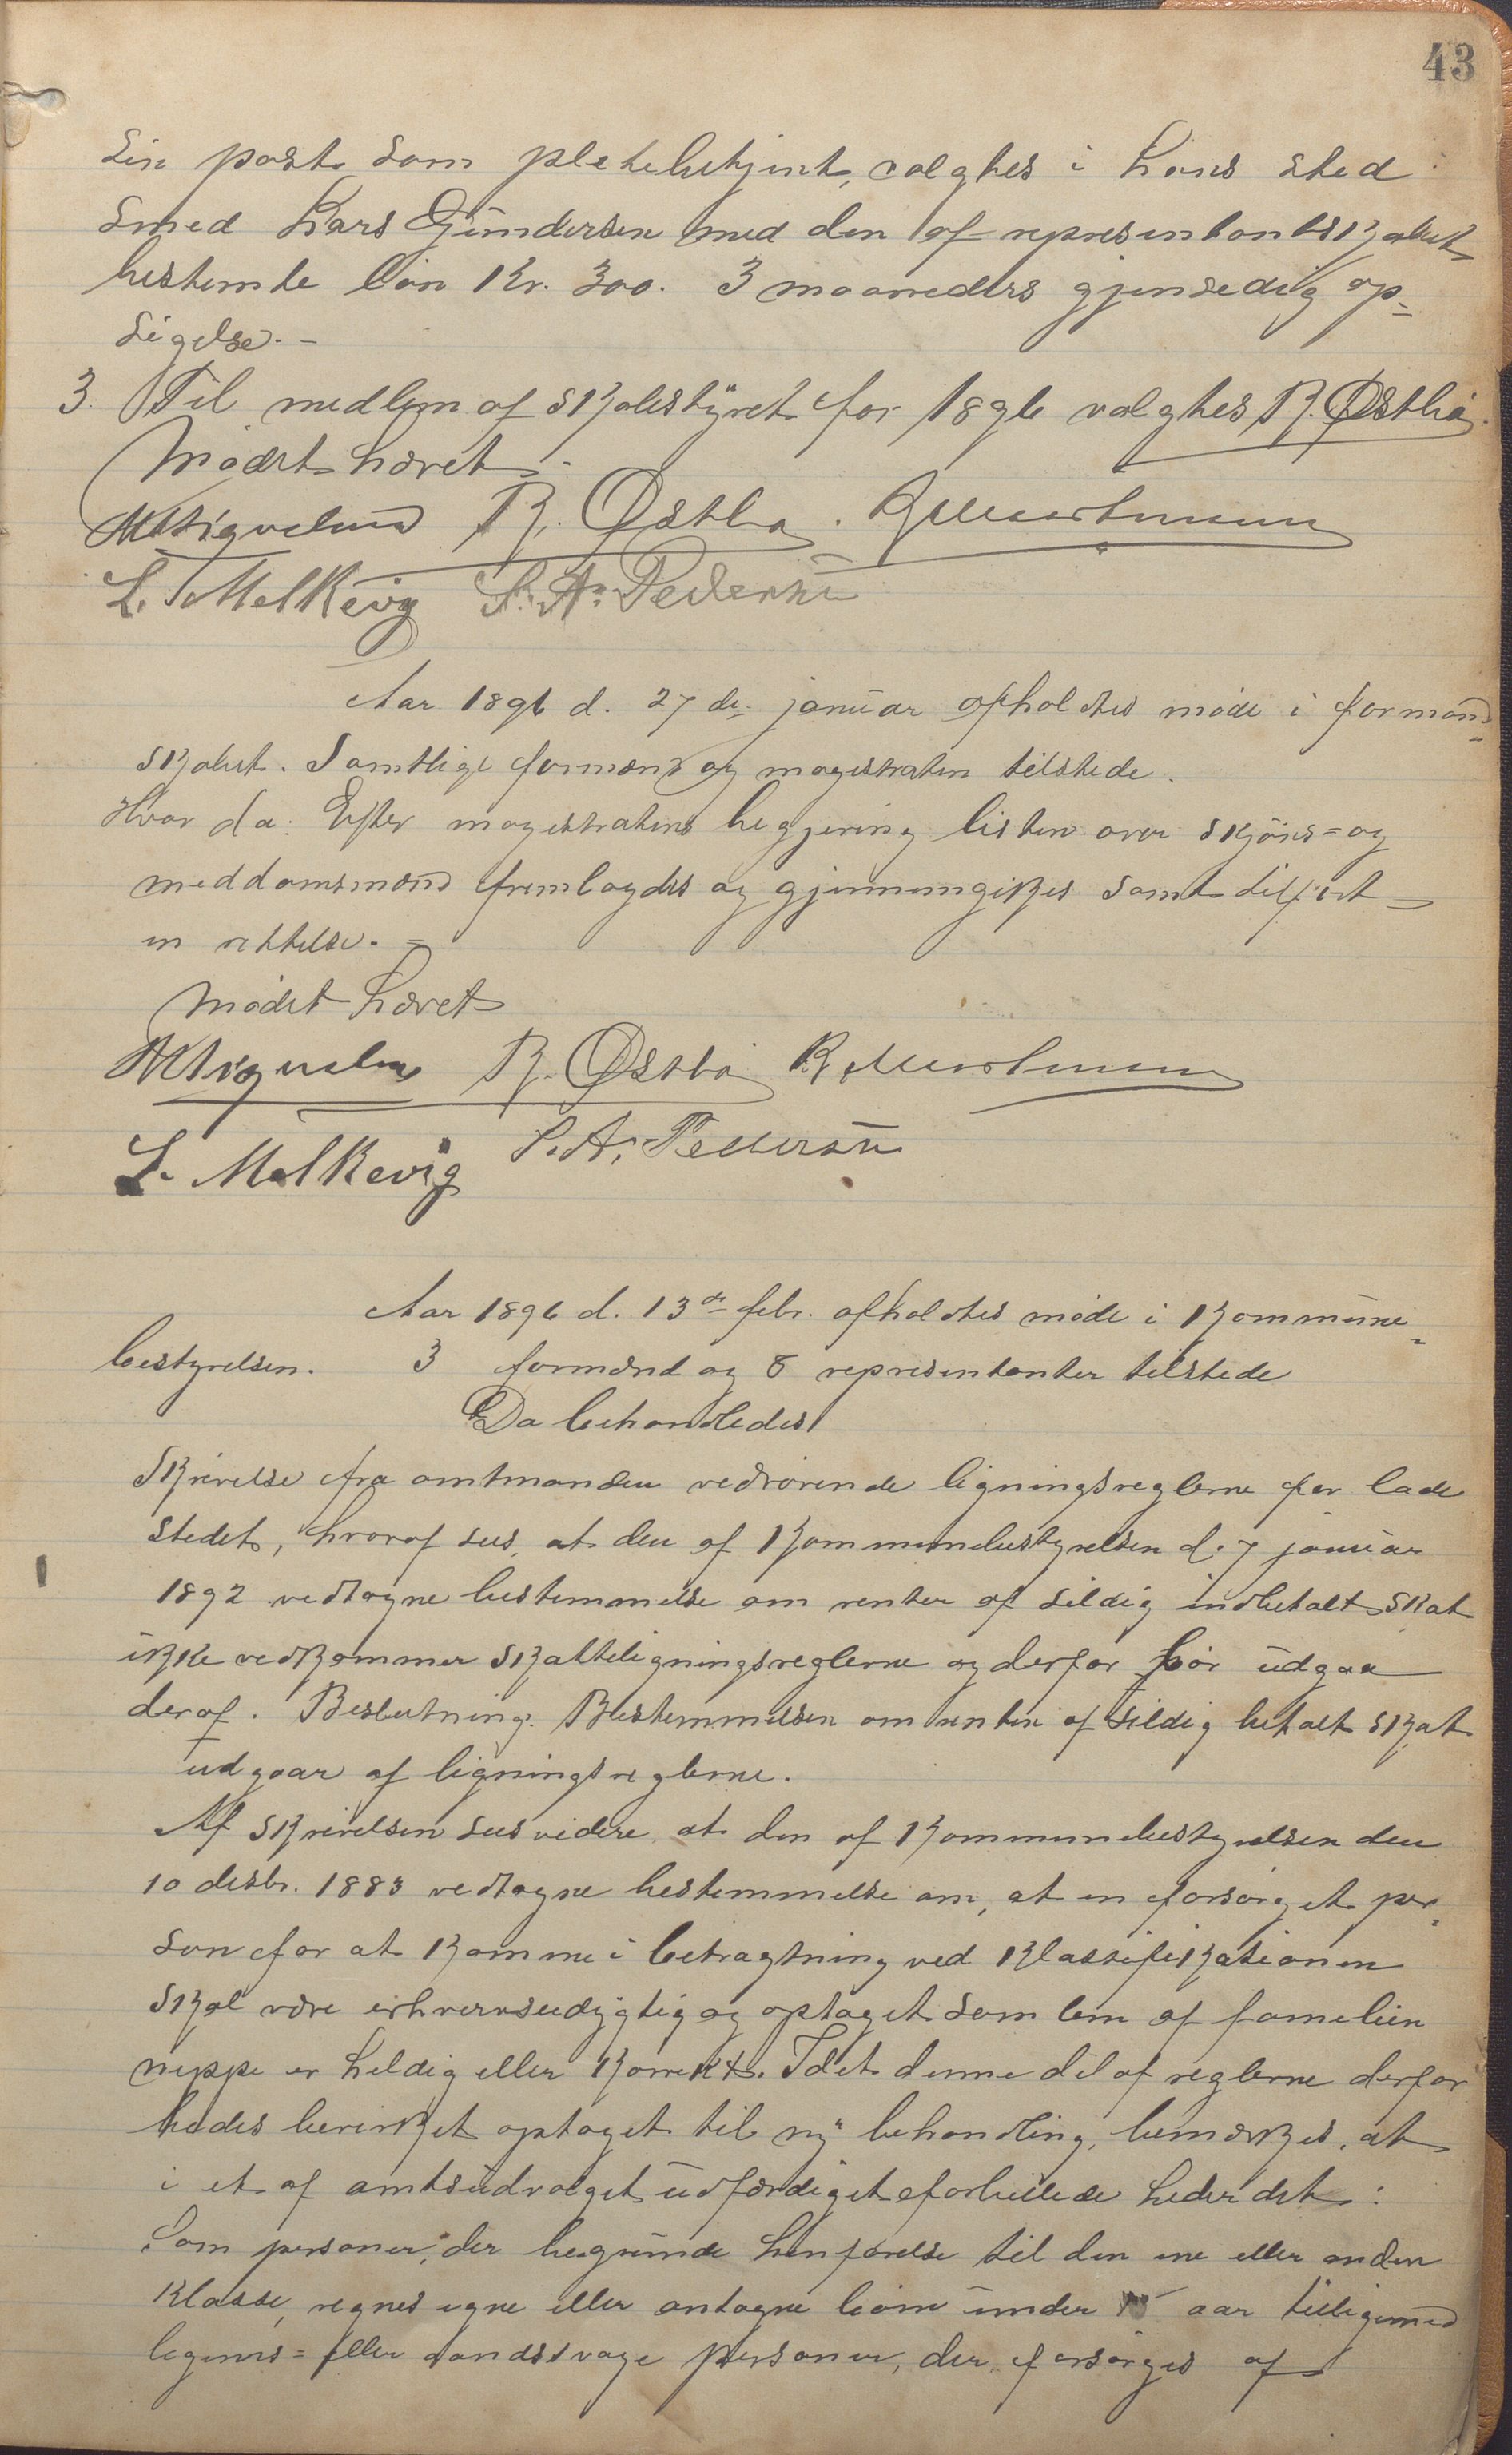 43
sin post som politibetjent, valgtes i hans sted
smed Lars Gundersen med den af representantskabet
bestemte løn Kr. 300. 3 maaneders gjensedig op=
sigelse. –
3. Til medlem af skolestyret for 1896 valgtes R. Østbø.
Mødet hævet.
R. Østbø.
L. Melkevig S. A. Pedersen
Aar 1896 d. 27de januar afholdtes møde i formand=
skabet. Samtlige formænd og magistraten tilstede.
Hvor da: Efter magistratens begjæring listen over skjøns= og
meddomsmænd fremlagdes og gjennemgikkes samt tilført
en rettelse. –
Mødet hævet
R. Østbø
L. Melkevig S. A. Pedersen
Aar 1896 d. 13de febr. afholdtes møde i kommune=
bestyrelsen. 3 formænd og 8 representanter tilstede
Da behandledes
Skrivelse fra amtmanden vedrørende ligningsreglerne for lade
stedet, hvoraf sees, at den af kommunebestyrelsen d. 7 januar
1892 vedtagne bestemmelse om renter af sildig indbetalt skat
ikke vedkommer skatteligningsreglerne og derfor bør udgaa
deraf. Beslutning: Bestemmelsen om renter af sildig betalt skat
udgaar af ligningsreglerne.
Af skrivelsen sees videre at den af kommunebestyrelsen den
10 desbr. 1883 vedtagne bestemmelse om, at en forsørget per=
son for at komme i betragtning ved klassifikationen
skal være erhvervsudygtig og optaget som lem af familien
neppe er heldig eller korrekt. Idet denne del af reglerne derfor
bedes bevirket optaget til ny behandling, bemærkes, at
i et af amtsudvalget udfærdiget forbillede heder det:
Som personer, der begrunde henførelse til den ene eller anden
klasse, regnes egne eller antagne børn under 15 aar tilligemed
legems= eller aandssvage personer, der forsørges af